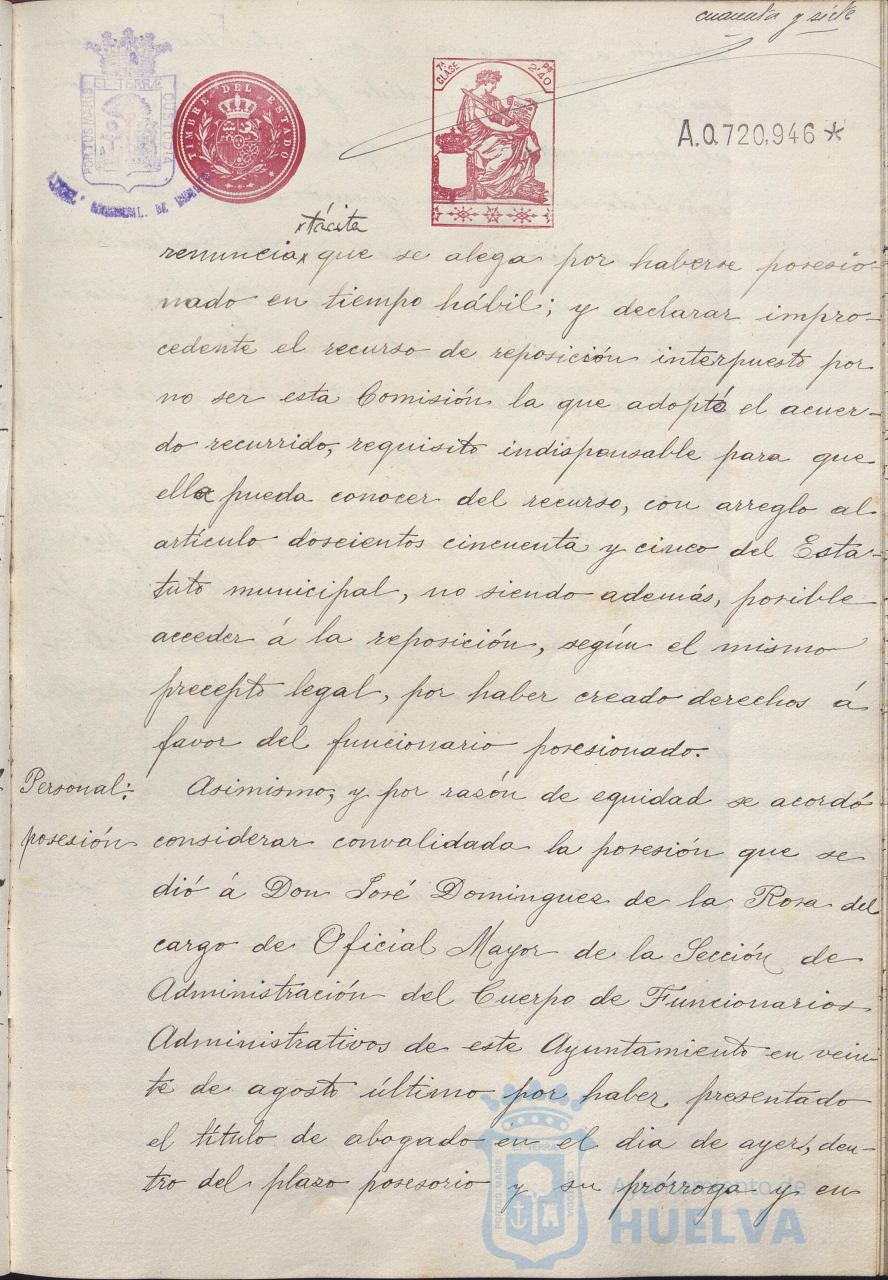 cuarenta y siete
PORTUS MARIS ET TERRÆ CUSTODIA
TIMBRE DEL ESTADO
7ª CLASE
2'40 PS
A.0.720,946*
x tácita
renuncia x que se alega por haberse posesio-
nado en tiempo hábil; y declarar impro-
cedente el recurso de reposición interpuesto por
no ser esta Comisión la que adoptó el acuer-
do recurrido, requisito indispensable para que
ella pueda conocer del recurso, con arreglo al
artículo doscientos cincuenta y cinco del Esta-
tuto municipal, no siendo además, posible
acceder á la reposición, según el mismo
precepto legal, por haber creado derechos á
favor del funcionario posesionado.
Personal:
posesión
Asimismo, y por razón de equidad se acordó
considerar convalidada la posesión que se
dió á Don José Dominguez de la Rosa del
cargo de Oficial Mayor de la Sección de
Administración del Cuerpo de Funcionarios
Administrativos de este Ayuntamiento en vein-
te de agosto último por haber presentado
el título de abogado en el dia de ayer, den-
tro del plazo posesorio y su prórroga y en
PORTUS MARIS ET TERRÆ CUSTODIA
Ayuntamiento de
HUELVA